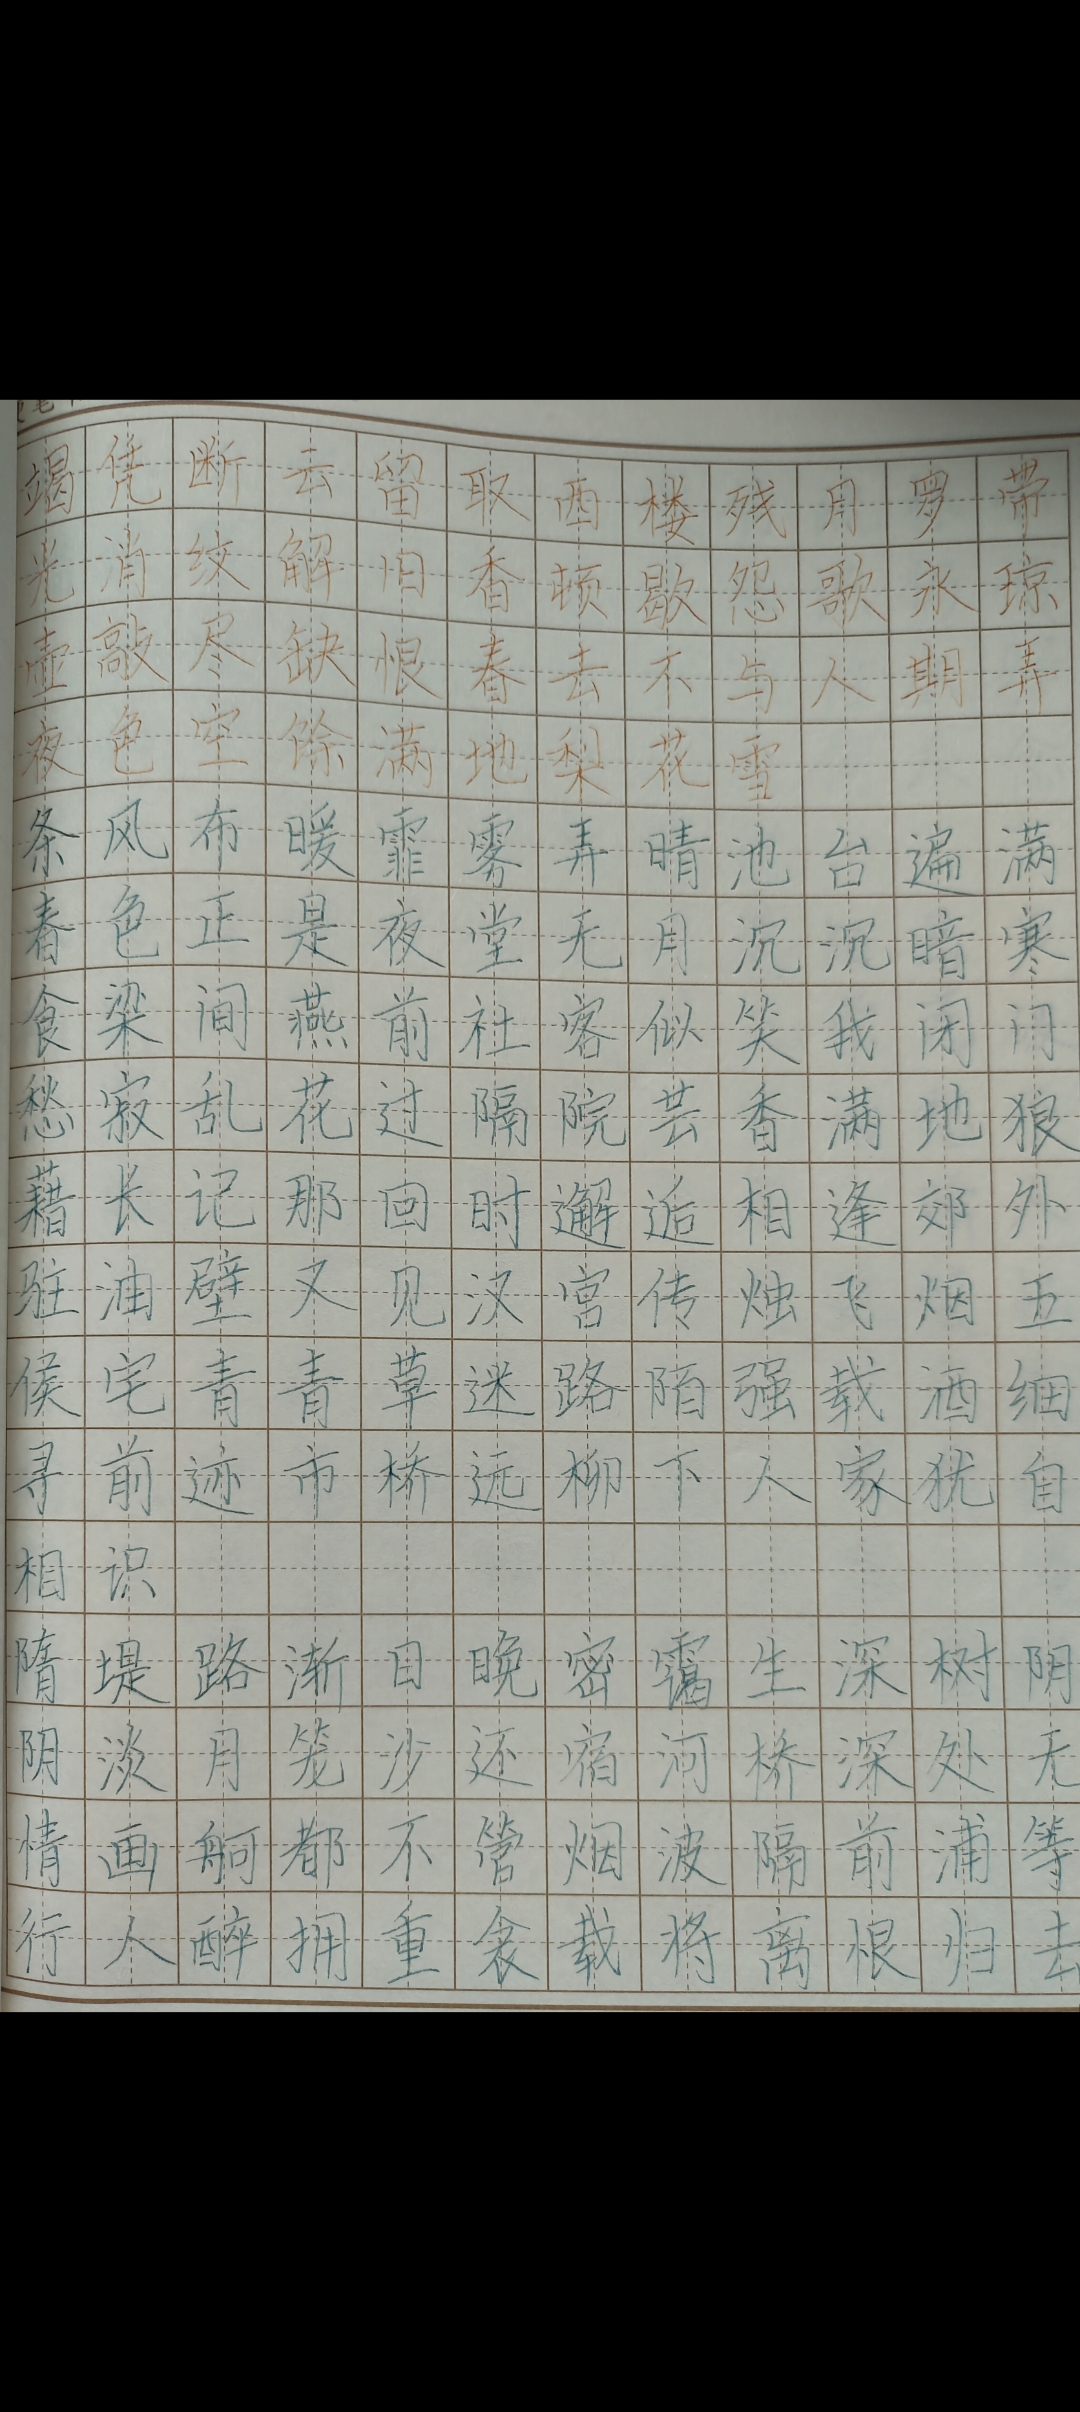 竭凭断云留取西楼残月罗带
光消纹解怕香顿歇怨歌永琼
壶敲尽缺恨春去不与人期弄
夜色空馀满地梨花雪
条风布暖霏雾弄晴池台遍满
春色正是夜堂无月沉沉暗寒
食梁间燕前社客似笑我闭门
愁寂乱花过隔院芸香满地狼
藉长记那回时邂逅相逢郊外
驻油壁又见汉宫传烛飞烟五
侯宅青青草迷路陌强载酒细
寻前迹市桥远柳下人家犹自
相识
隋堤路渐日晚密霭生深树阴
阴淡月笼沙还宿河桥深处无
情画舸都不管烟波隔前浦等
行人醉拥重衾载将离恨归去